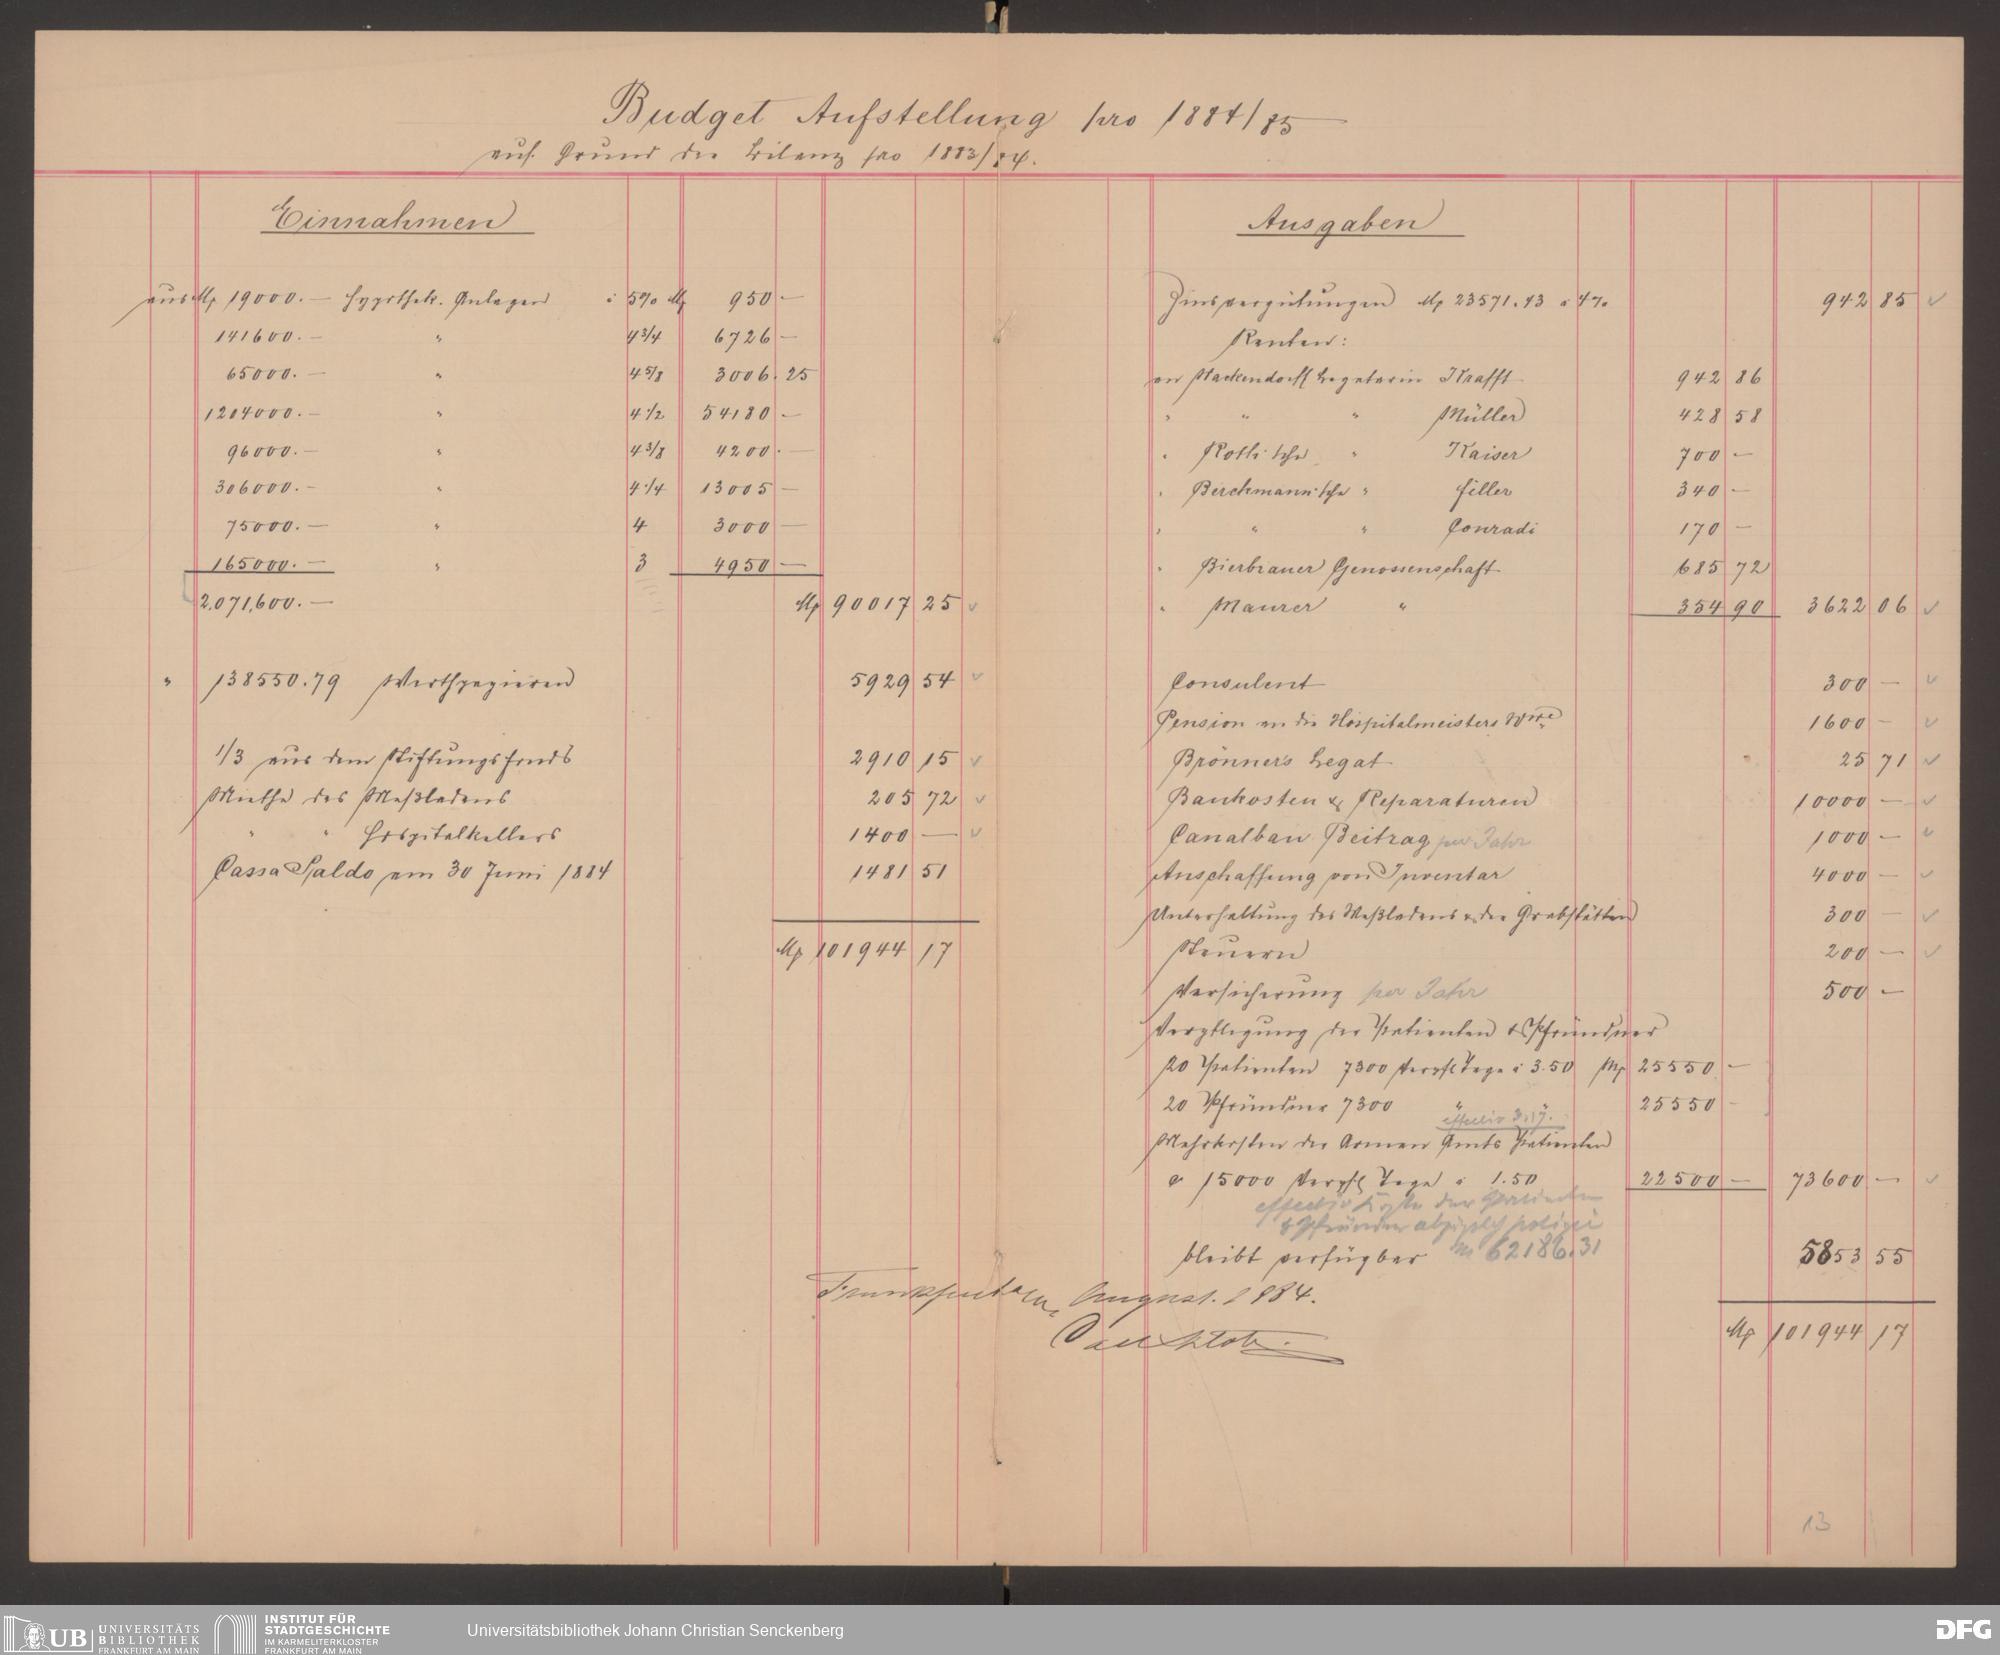 Budget Aufstellung pro 1884/85
auf Grund der Bilanz pro 1883/84.
Einnahmen
aus M 19000.— Hypothek. Anlagen à 5% M 950 —
141600.— " 4 3/4 6726 —
65000.— " 4 5/8 3006.25
1204000.— " 4 1/2 54180 —
96000.— " 4 3/8 4200.—
306000.— " 4 1/4 13005 —
75000.— " 4 3000 —
165000.— " 3 4950 —
2,071,600.— M 90017 25
" 138550.79 Werthpapieren 5929 54
1/3 aus dem Stiftungsfonds 2910 15
Miethe des Meßladens 205 72
" " Hospitalkellers 1400 —
Cassa Saldo am 30 Juni 1884 1481 51
M 101944 17
Ausgaben
Zinsvergütungen M 23571.43 à 4% 942 85
Renten:
an Stackendorff Legatarin Krafft 942 86
" " " Müller 428 58
" Roth'sche " Kaiser 700 —
" Berckmann'sche " Hiller 340 —
" " " Conradi 170 —
" Bierbrauer Genossenschaft 685 72
" Maurer " 354 90 3622 06
Consulent 300 —
Pension an die Hospitalmeisters Wwe 1600 —
Brönners Legat 25 71
Baukosten & Reparaturen 10000 —
Canalbau Beitrag per Jahr 1000 —
Anschaffung von Inventar 4000 —
Unterhaltung des Meßladens & der Grabstätten 300 —
Steuern 200 —
Versicherung per Jahr 500 —
Verpflegung der Patienten & Pfründner
20 Patienten 7300 Verpfl Tage à 3.50 M 25550 —
20 Pfründner 7300 " " 25550 —
effectiv 3.17.
Mehrkosten der Armen Amts Patienten
15000 Verpfl Tage à 1.50 22500 — 73600 —
effectiv Kosten der Patienten
& Pfründner
bleibt verfügbar M 62186.31 5853 55
M 101944 17
Frankfurt a/M, August 1884.
13
UB UNIVERSITÄTS
BIBLIOTHEK
FRANKFURT AM MAIN
INSTITUT FÜR
STADTGESCHICHTE
IM KARMELITERKLOSTER
FRANKFURT AM MAIN
Universitätsbibliothek Johann Christian Senckenberg
DFG